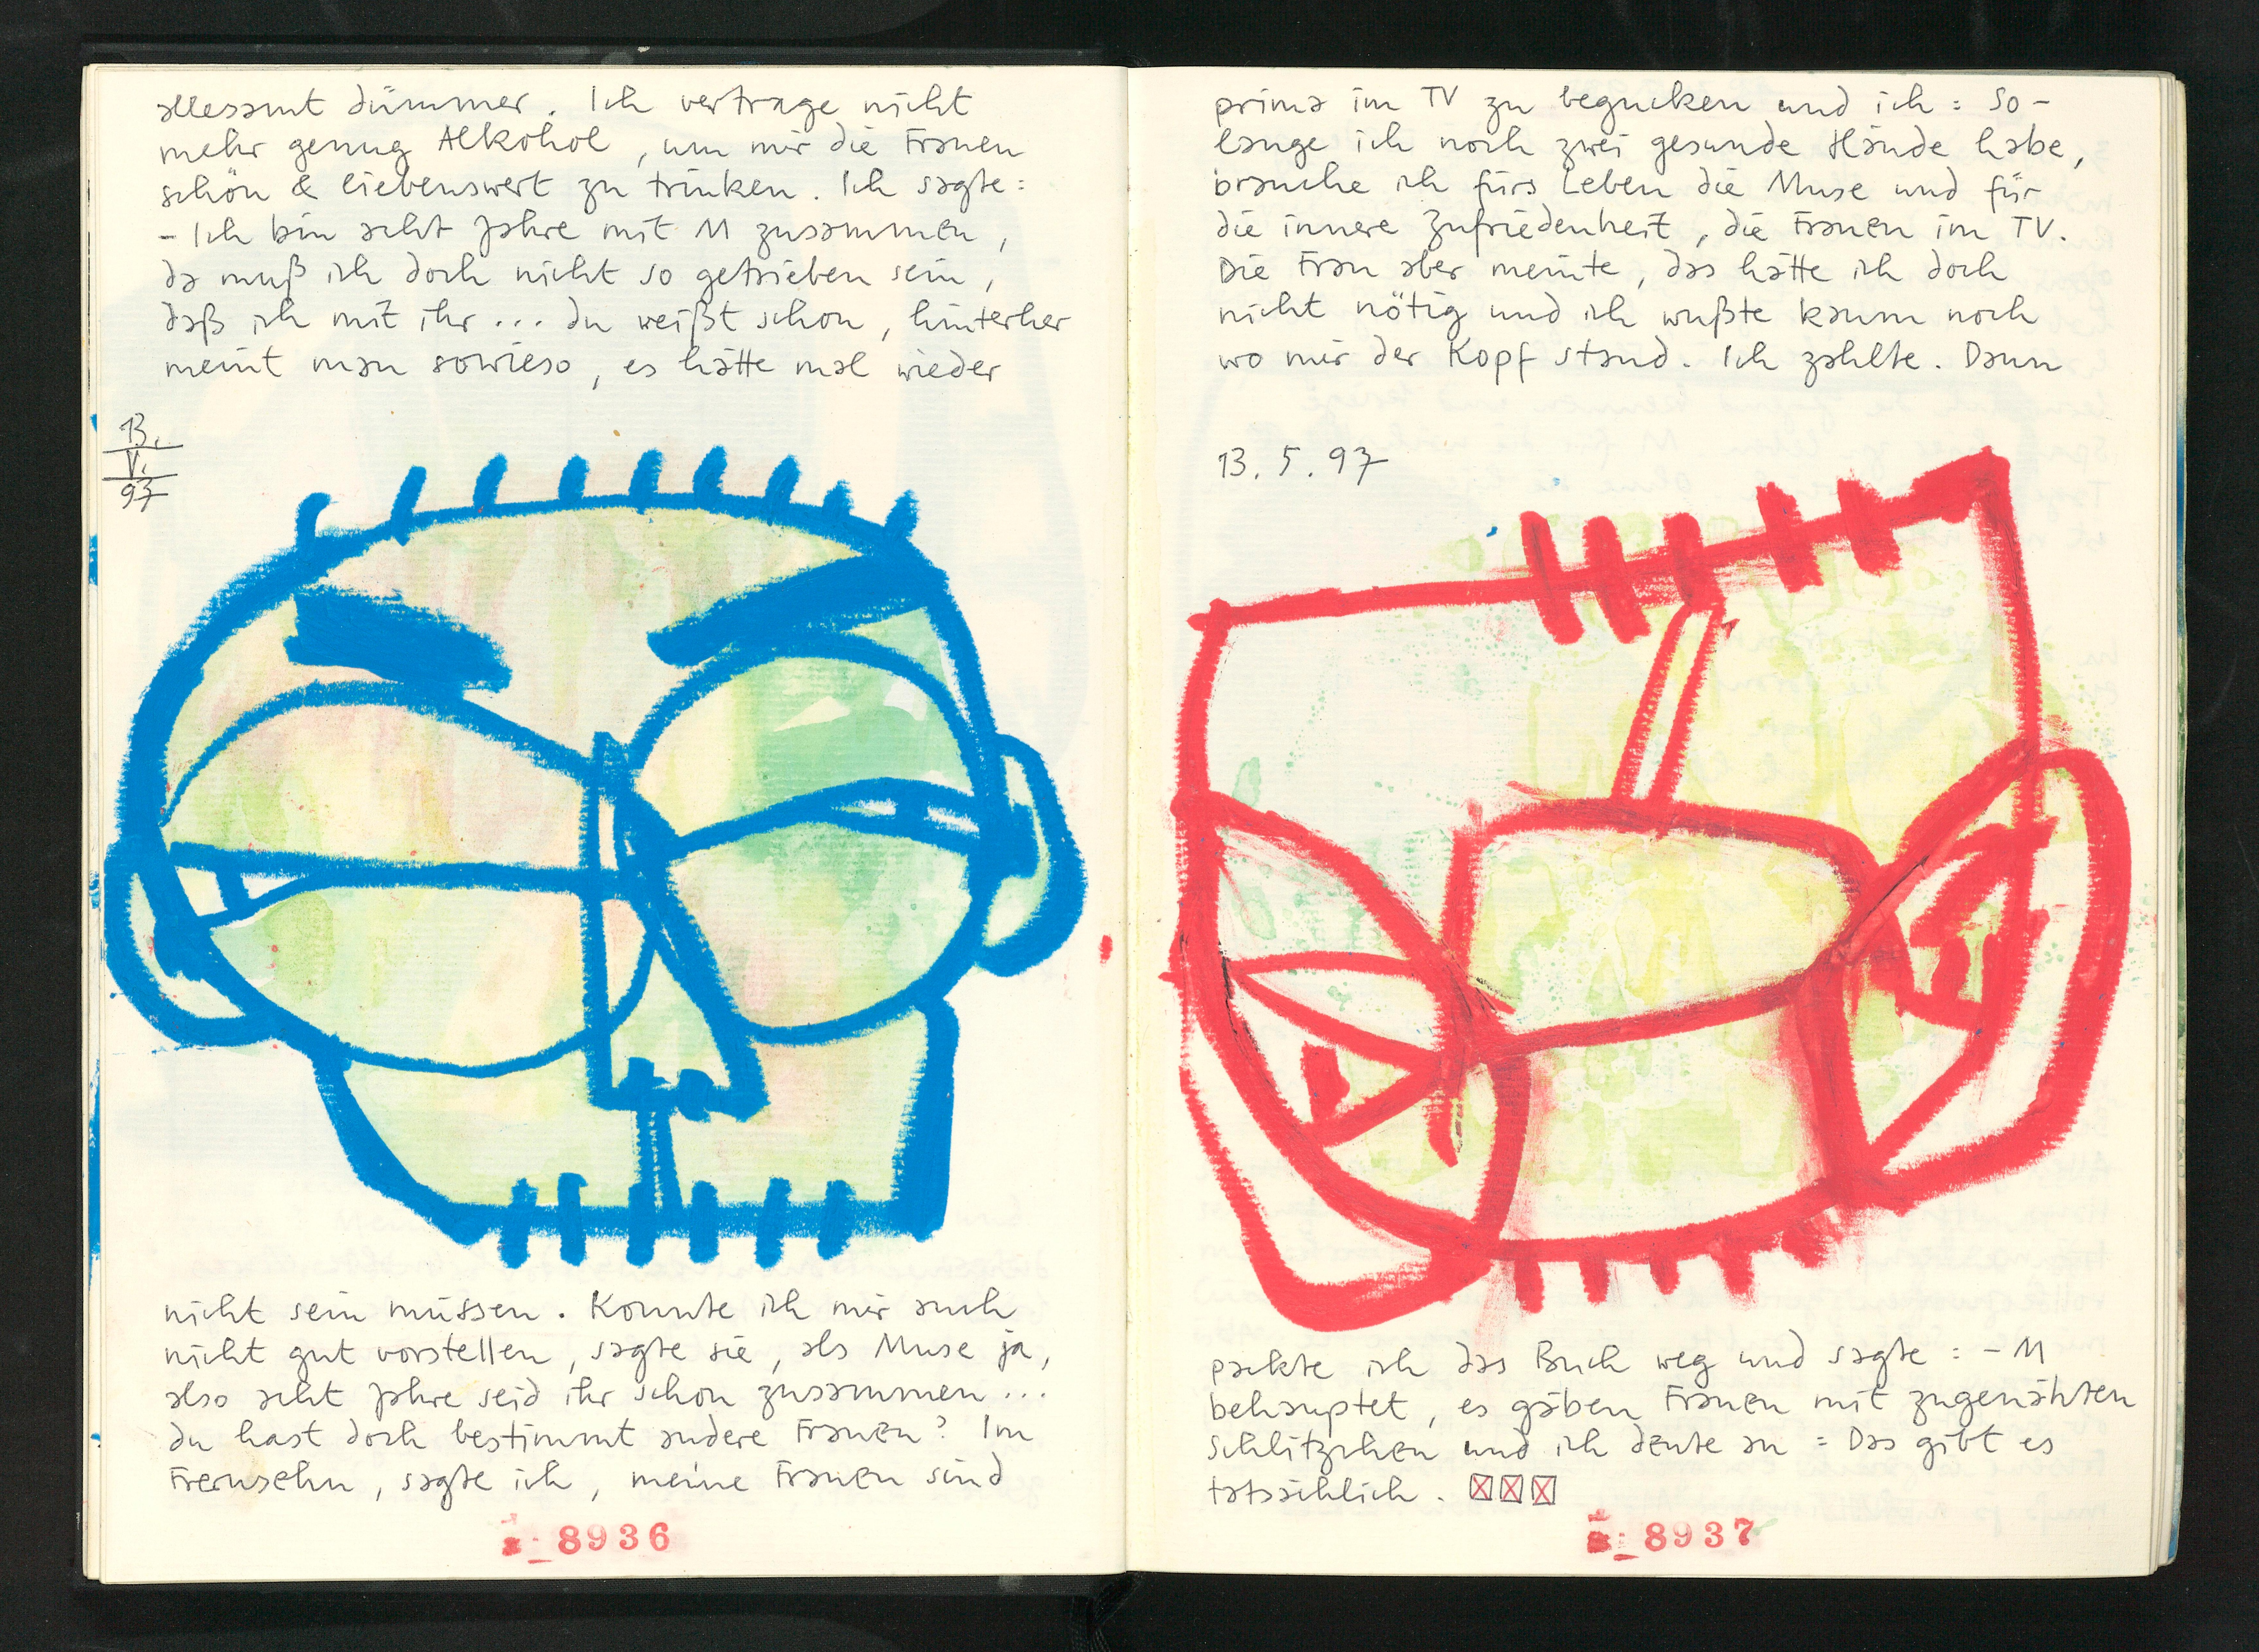 allesamt dümmer. Ich vertrage nicht
mehr genug Alkohol, um mir die Frauen
schön & liebenswert zu trinken. Ich sagte:
- Ich bin acht Jahre mit M zusammen,
da muß ich doch nicht so getrieben sein,
daß ich mit ihr ... du weißt schon, hinterher
meint man sowieso, es hätte mal wieder
13.
V.
97
nicht sein müssen. Konnte ich mir auch
nicht gut vorstellen, sagte sie, als Muse ja,
also acht Jahre seid ihr schon zusammen ...
du hast doch bestimmt andere Frauen? Im
Fernsehn, sagte ich, meine Frauen sind
8936
prima im TV zu begucken und ich: So-
lange ich noch zwei gesunde Hände habe,
brauche ich fürs Leben die Muse und für
die innere Zufriedenheit, die Frauen im TV.
Die Frau aber meinte, das hätte ich doch
nicht nötig und ich wußte kaum noch
wo mir der Kopf stand. Ich zahlte. Dann
13. 5. 97
packte ich das Buch weg und sagte: - M
behauptet, es gäben Frauen mit zugenähten
Schlitzchen und ich deute an: Das gibt es
tatsächlich.
8937